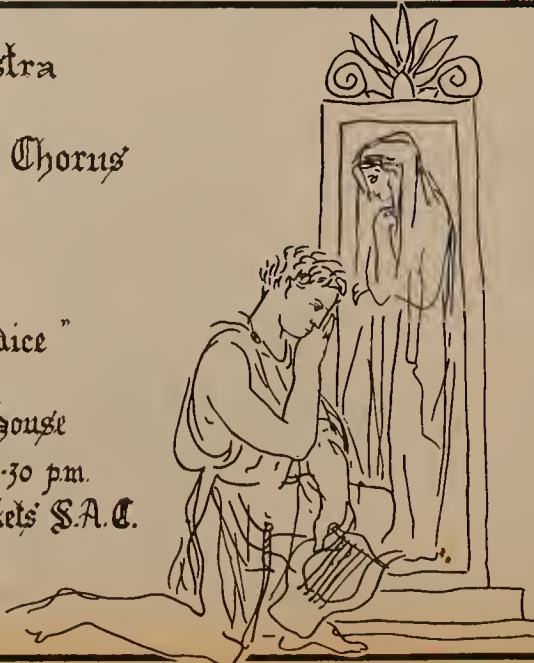 stra
Chorus
dice "
house
-30 p.m.
kets S.A.C.